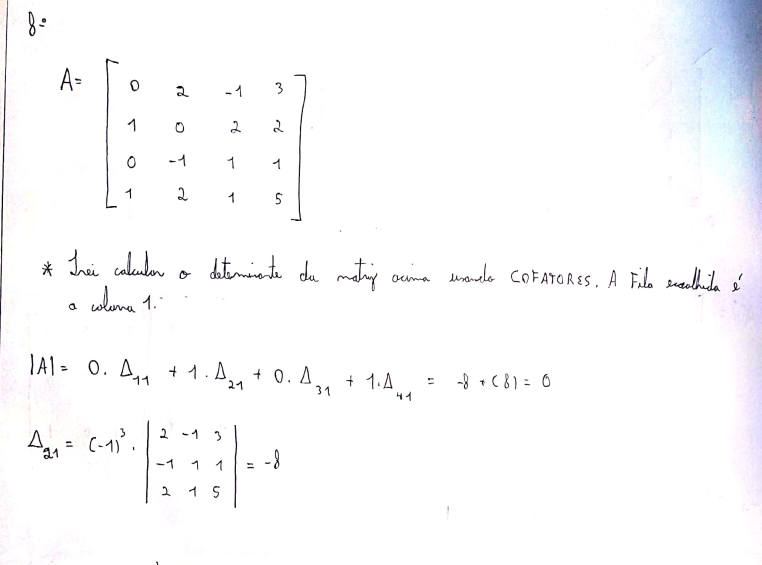 8º
A= [ 0 2 -1 3
1 0 2 2
0 -1 1 1
1 2 1 5 ]
* Irei calcular o determinante da matriz acima usando COFATORES. A Fila escolhida é
a coluna 1.
|A| = 0. Δ₁₁ + 1. Δ₂₁ + 0. Δ₃₁ + 1. Δ₄₁ = -8 + (8) = 0
Δ₂₁ = (-1)³ . | 2 -1 3
-1 1 1 | = -8
2 1 5 |